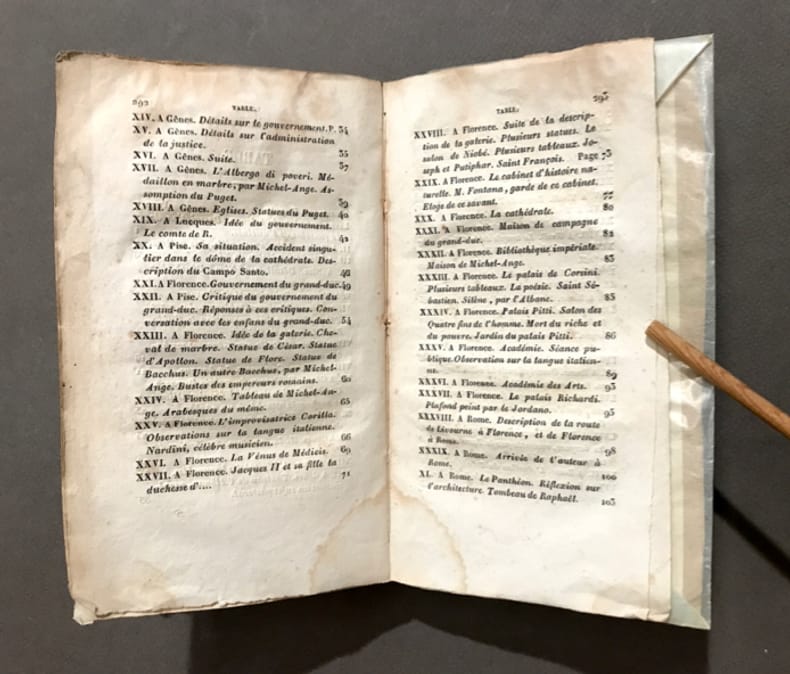 292
TABLE.
XIV. A Gênes. Détails sur le gouvernement. P. 34
XV. A Gênes. Détails sur l'administration
de la justice. 35
XVI. A Gênes. Suite. 37
XVII. A Gênes. L'Albergo di poveri. Mé-
daillon en marbre, par Michel-Ange. As-
somption du Puget. 39
XVIII. A Gênes. Eglises. Statues du Puget. 40
XIX. A Lucques. Idée du gouvernement.
Le comte de R. 42
XX. A Pise. Sa situation. Accident singu-
lier dans le dôme de la cathédrale. Des-
cription du Campo Santo. 46
XXI. A Florence. Gouvernement du grand-duc. 49
XXII. A Pise. Critique du gouvernement du
grand-duc. Réponses à ces critiques. Con-
versation avec les enfans du grand-duc. 54
XXIII. A Florence. Idée de la galerie. Che-
val de marbre. Statue de César. Statue
d'Apollon. Statue de Flore. Statue de
Bacchus. Un autre Bacchus, par Michel-
Ange. Bustes des empereurs romains. 60
XXIV. A Florence. Tableau de Michel-An-
ge. Arabesques du même. 65
XXV. A Florence. L'improvisatrice Corilla.
Observations sur la langue italienne.
Nardini, célèbre musicien. 66
XXVI. A Florence. La Vénus de Médicis. 69
XXVII. A Florence. Jacques II et sa fille la
duchesse d'.... 71
293
TABLE.
XXVIII. A Florence. Suite de la descrip-
tion de la galerie. Plusieurs statues. Le
salon de Niobé. Plusieurs tableaux. Jo-
seph et Putiphar. Saint François. Page 73
XXIX. A Florence. Le cabinet d'histoire na-
turelle. M. Fontana, garde de ce cabinet.
Eloge de ce savant. 77
XXX. A Florence. La cathédrale. 80
XXXI. A Florence. Maison de campagne
du grand-duc. 82
XXXII. A Florence. Bibliothèque impériale.
Maison de Michel-Ange. 83
XXXIII. A Florence. Le palais de Corsini.
Plusieurs tableaux. La poésie. Saint Sé-
bastien. Silène, par l'Albane. 85
XXXIV. A Florence. Palais Pitti. Salon des
Quatre fins de l'homme. Mort du riche et
du pauvre. Jardin du palais Pitti. 86
XXXV. A Florence. Académie. Séance pu-
blique. Observation sur la langue italien-
ne. 89
XXXVI. A Florence. Académie des Arts. 93
XXXVII. A Florence. Le palais Richardi.
Plafond peint par le Jordano. 95
XXXVIII. A Rome. Description de la route
de Livourne à Florence, et de Florence
à Rome. 98
XXXIX. A Rome. Arrivée de l'auteur à
Rome. 100
XL. A Rome. Le Panthéon. Réflexion sur
l'architecture. Tombeau de Raphaël. 103